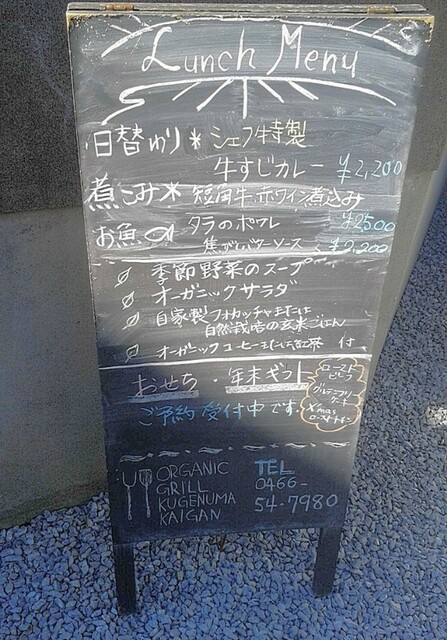 Lunch Menu
日替わり * シェフ特製
牛すじカレー ¥2,200
煮こみ * 短角牛、赤ワイン煮込み
¥2500
お魚 タラのポワレ
焦がしバターソース ¥2,200
季節野菜のスープ
オーガニックサラダ
自家製フォカッチャまたは
自然栽培の玄米ごはん
オーガニックコーヒーまたは紅茶 付
おせち・年末ギフト
ご予約受付中です。
ローストビーフ
グルテンフリーケーキ
X'mas
ローストチキン
ORGANIC
GRILL
KUGENUMA
KAIGAN
TEL
0466-
54-7980